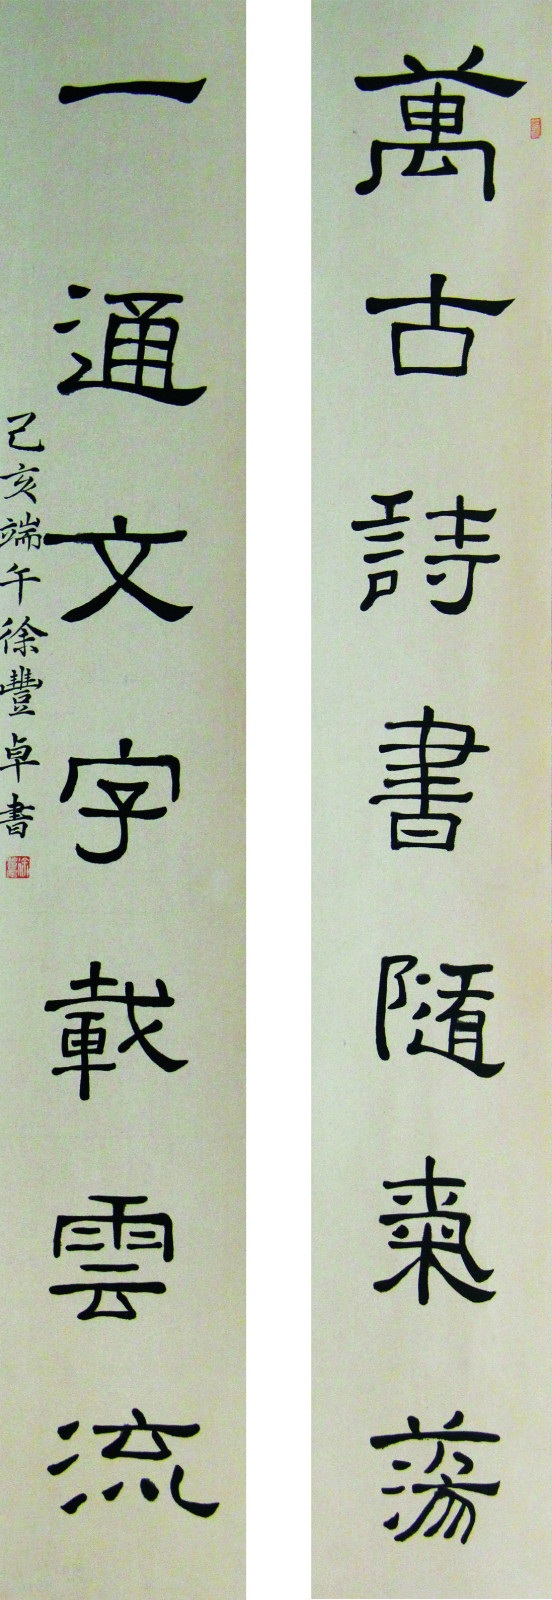 萬古詩書隨蕩
一通文字載雲流
己亥端午徐豐卓書